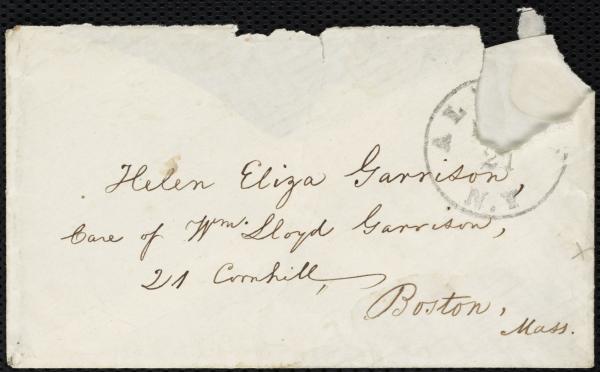 AL
21
N.Y
Helen Eliza Garrison,
Care of Wm. Lloyd Garrison,
21 Cornhill,
Boston,
Mass.